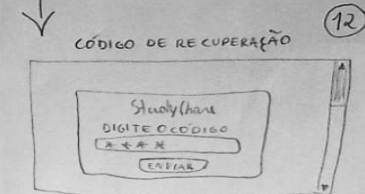 12
CÓDIGO DE RECUPERAÇÃO
StudyShare
DIGITE O CÓDIGO
* * * *
ENVIAR